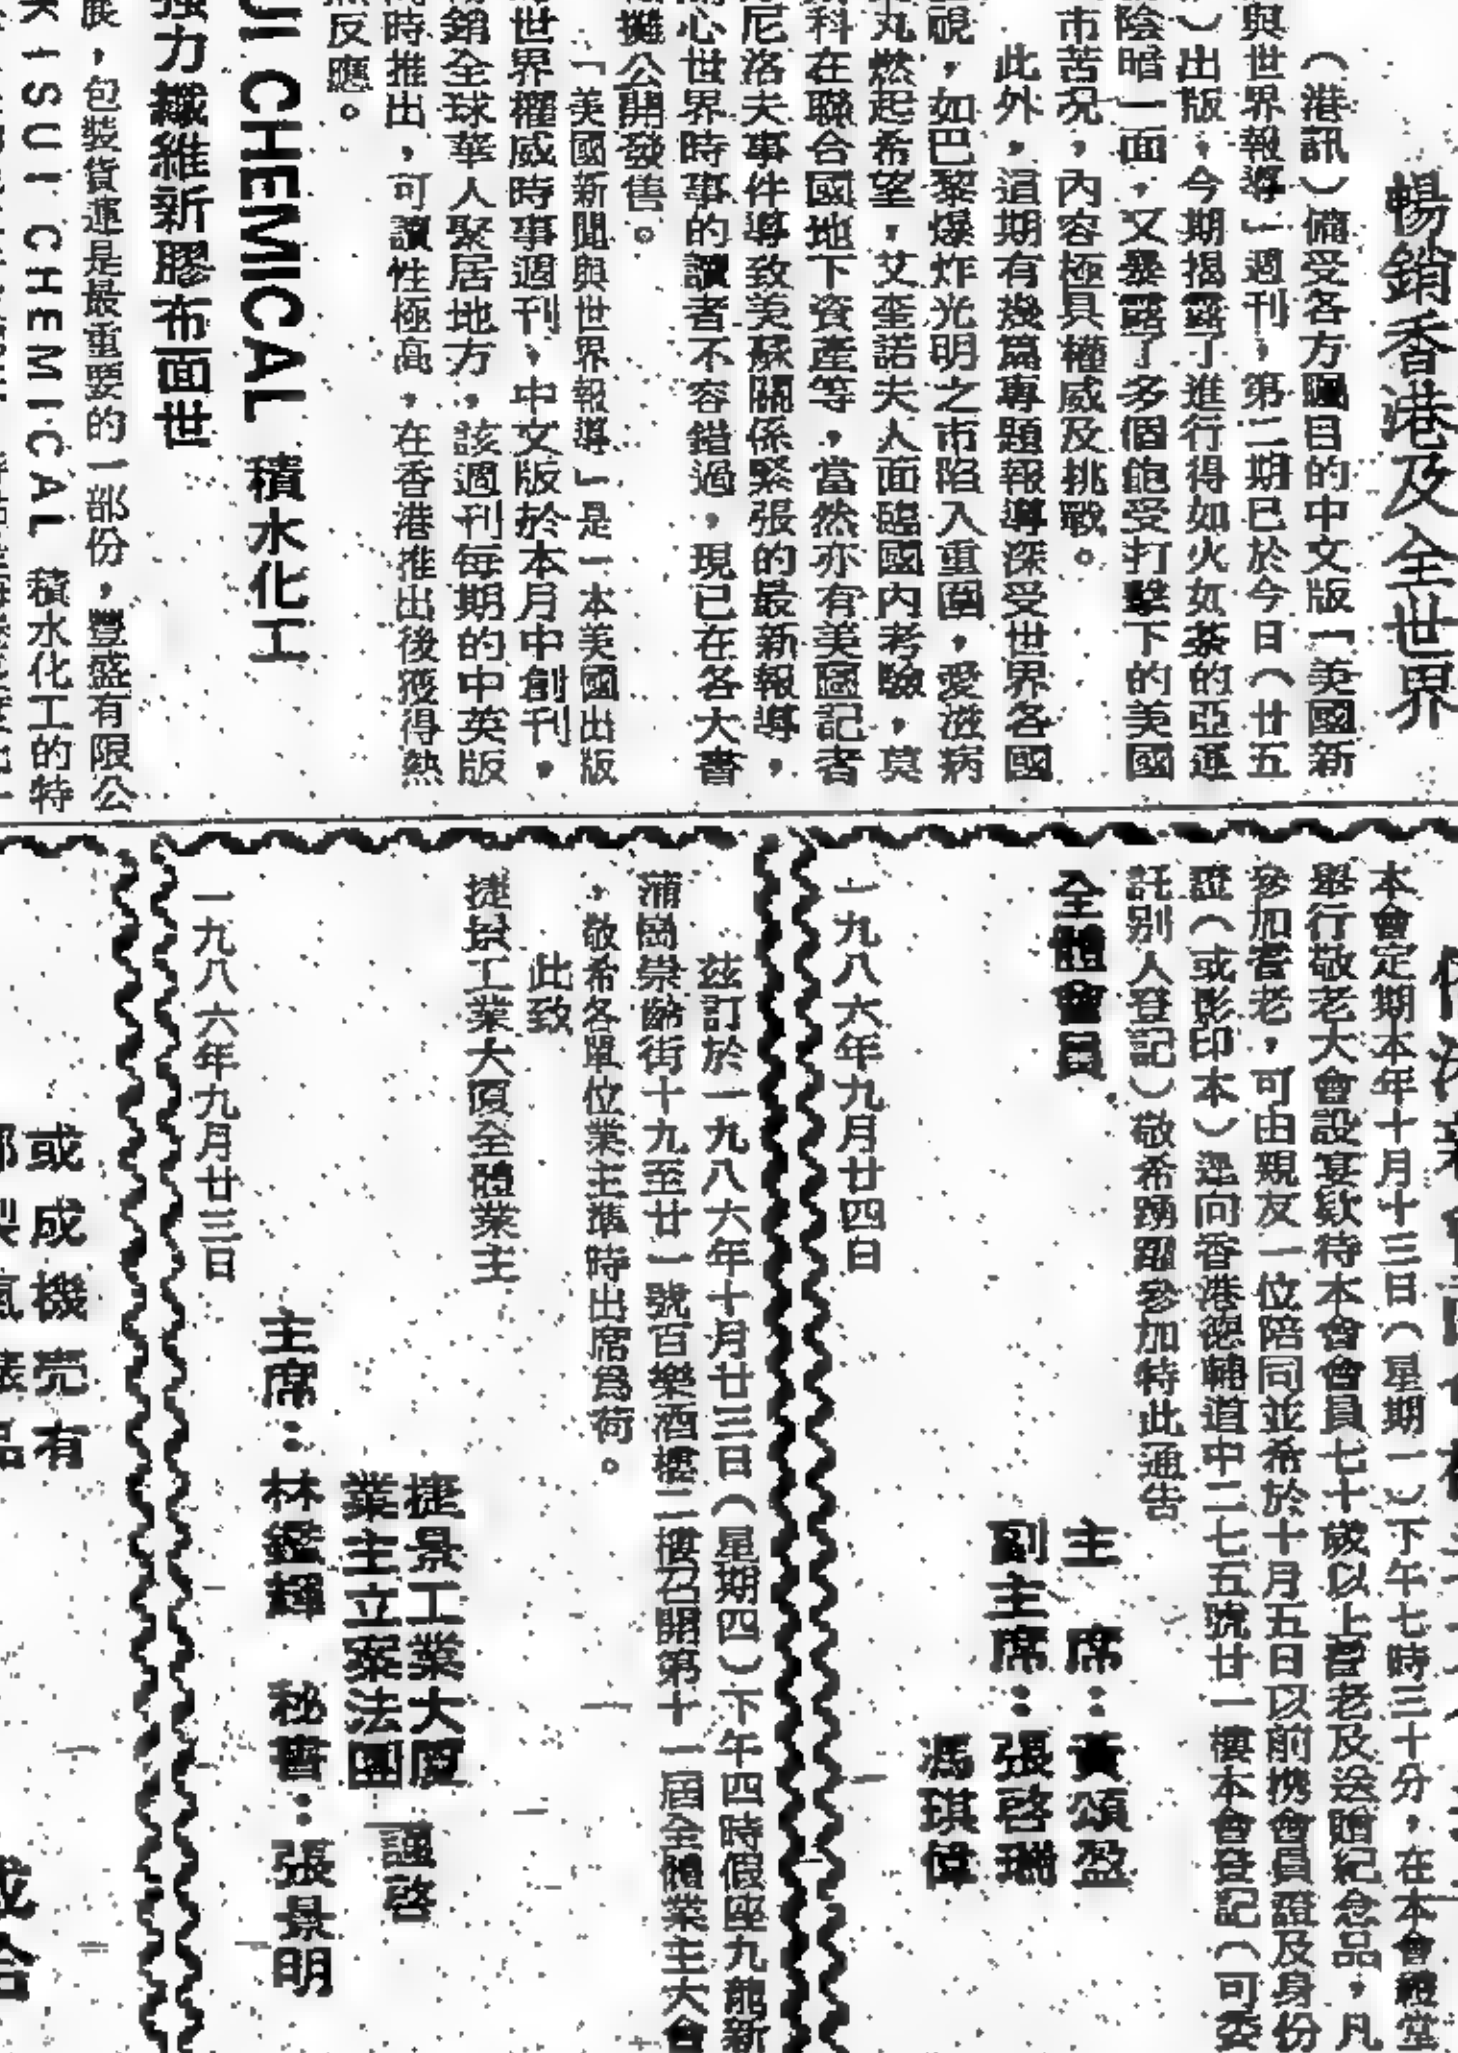 暢銷香港及全世界
（港訊）備受各方矚目的中文版「美國新
與世界報導」週刊，第二期已於今日（廿五
）出版，今期揭露了進行得如火如荼的亞運
陰暗一面，又暴露了多個飽受打擊下的美國
市苦況，內容極具權威及挑戰。
此外，這期有幾篇專題報導深受世界各國
視，如巴黎爆炸光明之市陷入重圍，愛滋病
丸燃起希望，艾奎諾夫人面臨國內考驗，莫
科在聯合國地下資產等，當然亦有美國記者
尼洛夫事件導致美蘇關係緊張的最新報導，
心世界時事的讀者不容錯過，現已在各大書
攤公開發售。
「美國新聞與世界報導」是一本美國出版
世界權威時事週刊，中文版於本月中創刊，
銷全球華人聚居地方，該週刊每期的中英版
時推出，可讀性極高，在香港推出後獲得熱
反應。
UI CHEMICAL 積水化工
強力纖維新膠布面世
展，包裝貨運是最重要的一部份，豐盛有限公
KISUI CHEMICAL 積水化工的特
本會定期本年十月十三日（星期一）下午七時三十分，在本會禮堂
舉行敬老大會設宴欵待本會會員七十歲以上耆老及送贈紀念品，凡
參加耆老，可由親友一位陪同並希於十月五日以前携會員證及身份
證（或影印本）逕向香港德輔道中二七五號廿一樓本會登記（可委
託別人登記）敬希踴躍參加特此通告
全體會員
主　席：黃頌盈
副主席：張啓瑞
馮琪偉
一九八六年九月廿四日
茲訂於一九八六年十月廿三日（星期四）下午四時假座九龍新
蒲崗崇齡街十九至廿一號百樂酒樓二樓召開第十一屆全體業主大會
，敬希各單位業主準時出席爲荷。
此致
捷景工業大廈全體業主
捷景工業大廈
業主立案法團
謹啓
主席：林鑑輝　秘書：張景明
一九八六年九月廿三日
或成機壳有